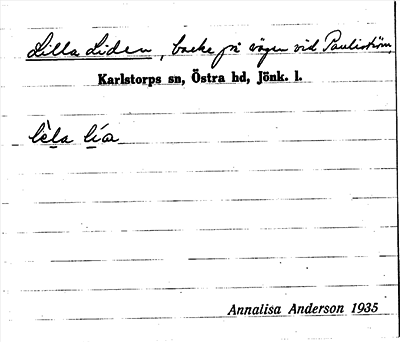 Lilla Liden, backe på vägen vid Pauliström,
Karlstorps sn, Östra hd, Jönk. l.
lèla lía
Annalisa Anderson 1935